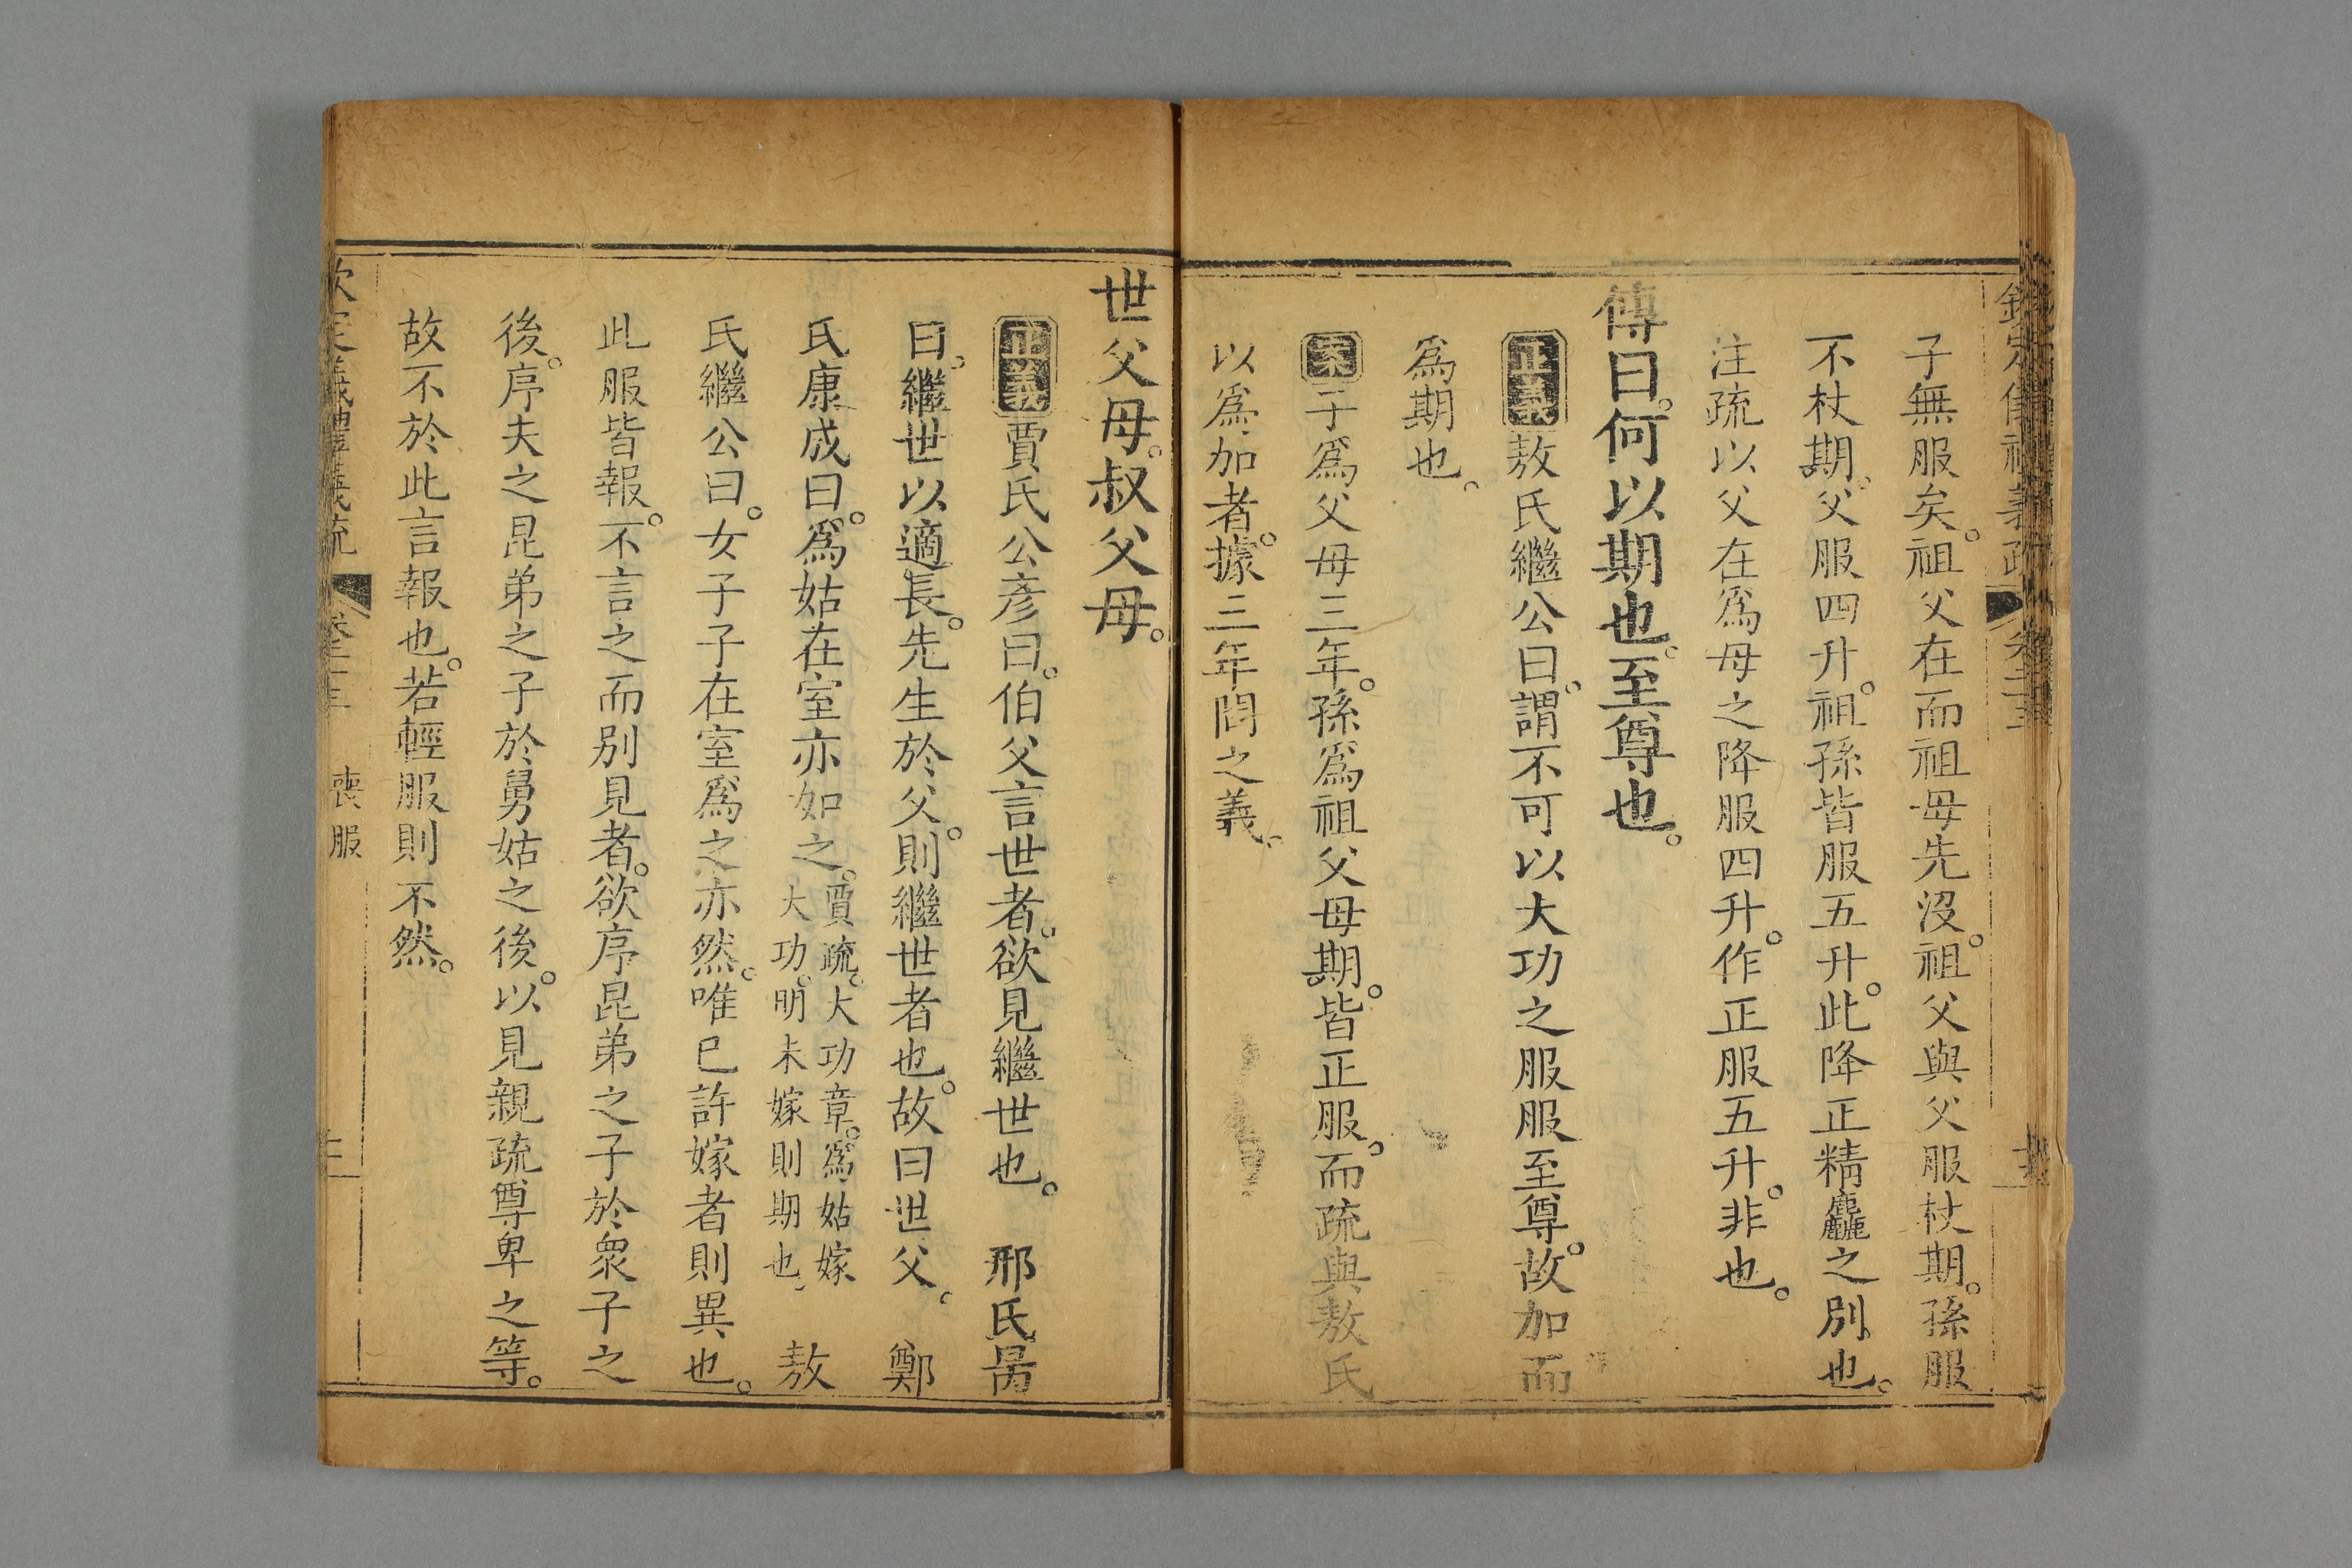 子無服矣。祖父在而祖母先沒。祖父與父服杖期。孫服
不杖期。父服四升。祖孫皆服五升。此降正精麤之別也。
注疏以父在爲母之降服四升。作正服五升。非也。
傳曰。何以期也。至尊也。
正義敖氏繼公曰。謂不可以大功之服服至尊。故加而
爲期也。
案子爲父母三年。孫爲祖父母期。皆正服。而疏與敖氏
以爲加者。據三年問之義。
世父母。叔父母。
正義賈氏公彥曰。伯父言世者。欲見繼世也。 邢氏昺
曰。繼世以適長。先生於父。則繼世者也。故曰世父。 鄭
氏康成曰。爲姑在室亦如之。賈疏。大功章。爲姑嫁大功。明未嫁則期也。 敖
氏繼公曰。女子子在室爲之亦然。唯已許嫁者則異也。
此服皆報。不言之而別見者。欲序昆弟之子於衆子之
後。序夫之昆弟之子於舅姑之後。以見親疏尊卑之等。
故不於此言報也。若輕服則不然。
喪服